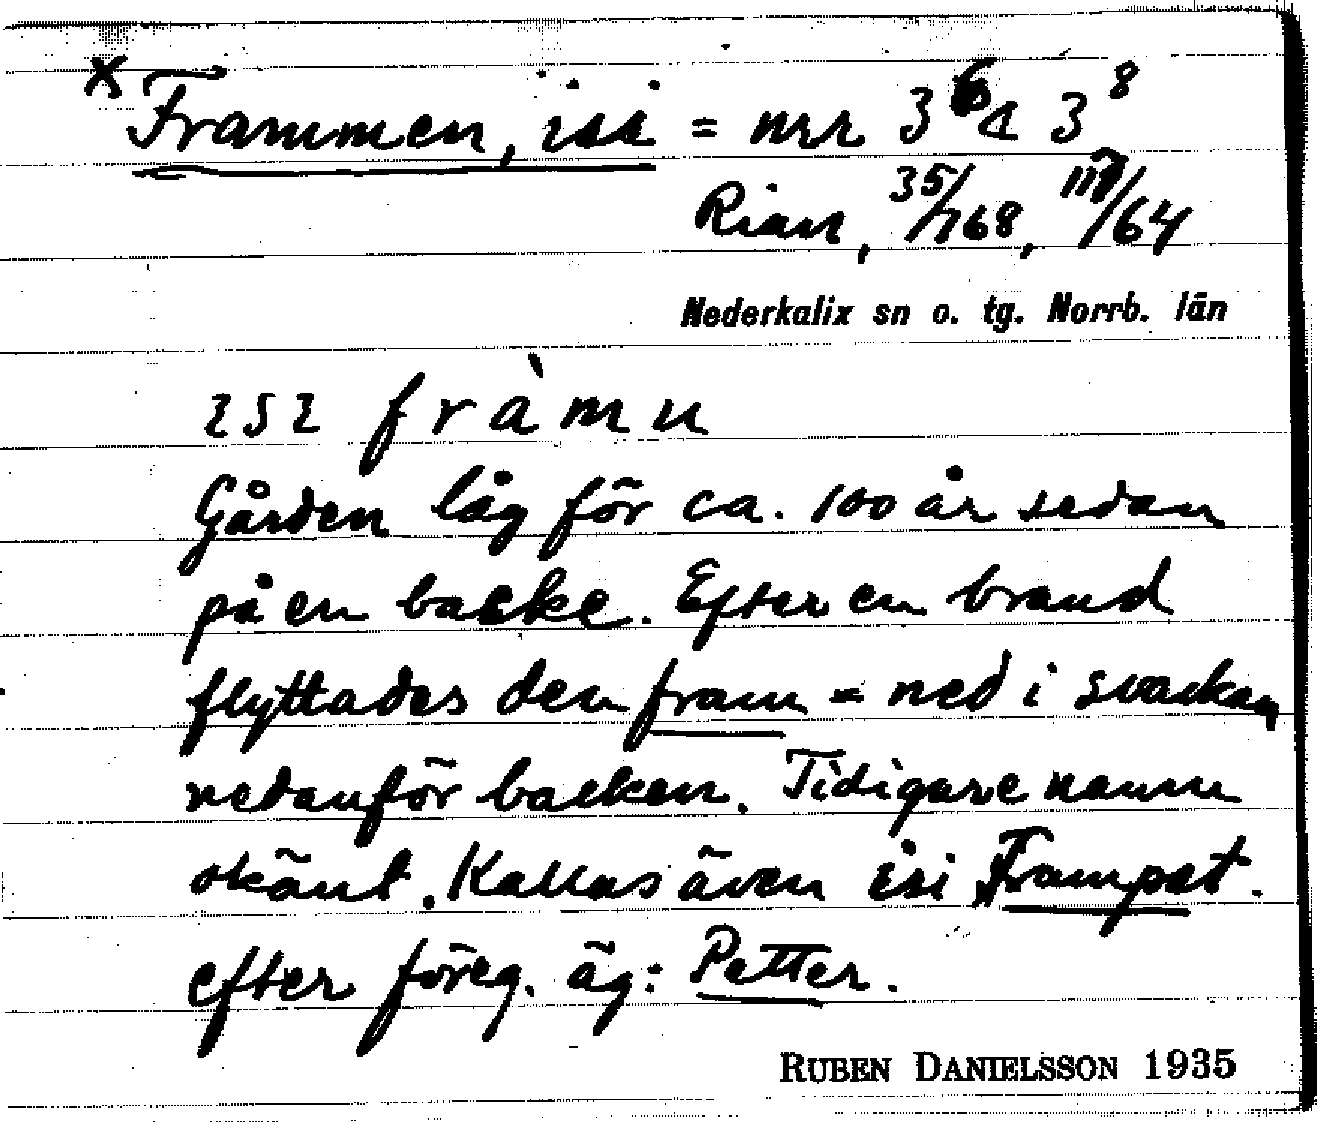 x Frammen, isi = nrr 3⁶ 3⁸
Rian, 35/168, /64
Nederkalix sn o. tg. Norrb. län
252 fràmn
Gården låg för ca. 100 år sedan
på en backe. Efter en brand
flyttades den fram = ned i svackan
nedanför backen. Tidigare namn
okänt. Kallas även isi Frampet.
efter föreg. äg: Petter.
RUBEN DANIELSSON 1935